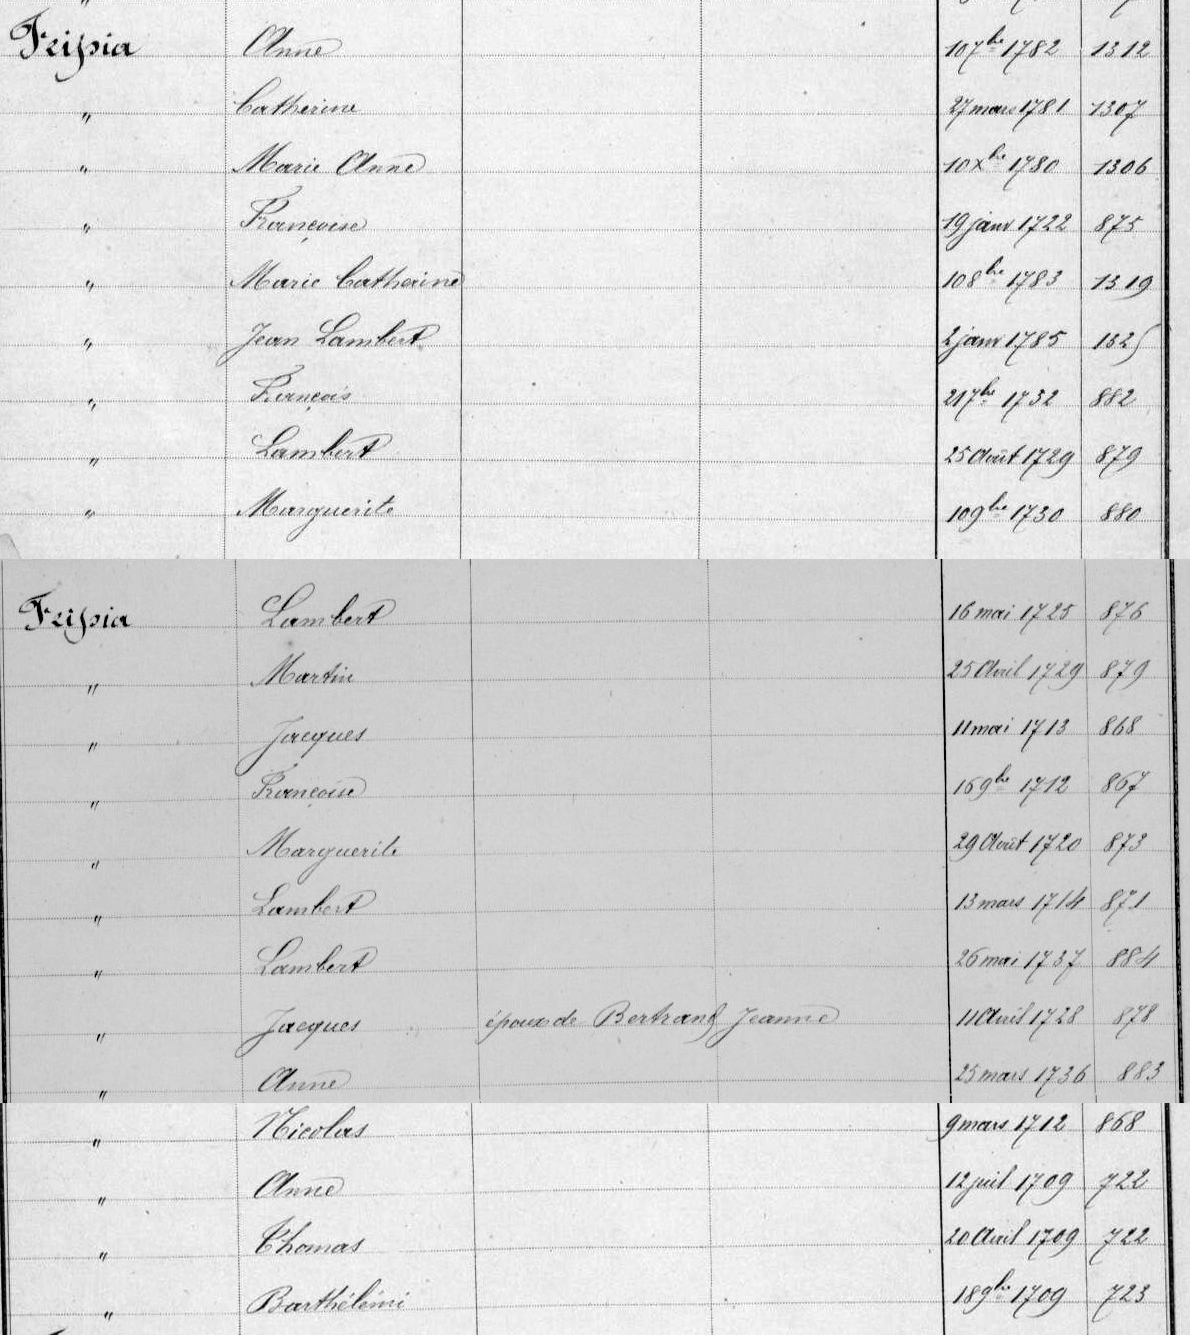 Frispia Anne 10 7bre 1782 1312
" Catherine 27 mars 1781 1307
" Marie Anne 10 Xbre 1780 1306
" Françoise 19 janv 1722 875
" Marie Catherine 10 8bre 1783 1319
" Jean Lambert 2 janv 1785 1325
" François 21 7bre 1732 882
" Lambert 25 Août 1729 879
" Marguerite 10 9bre 1730 880
Frispia Lambert 16 mai 1725 876
" Martin 25 Avril 1729 879
" Jacques 11 mai 1713 868
" Françoise 16 9bre 1712 867
" Marguerite 29 Août 1720 873
" Lambert 13 mars 1714 871
" Lambert 26 mai 1737 884
" Jacques époux de Bertrand Jeanne 11 Avril 1728 878
" Anne 25 mars 1736 883
" Nicolas 9 mars 1712 868
" Anne 12 juil 1709 722
" Thomas 20 Avril 1709 722
" Barthélémi 18 9bre 1709 723